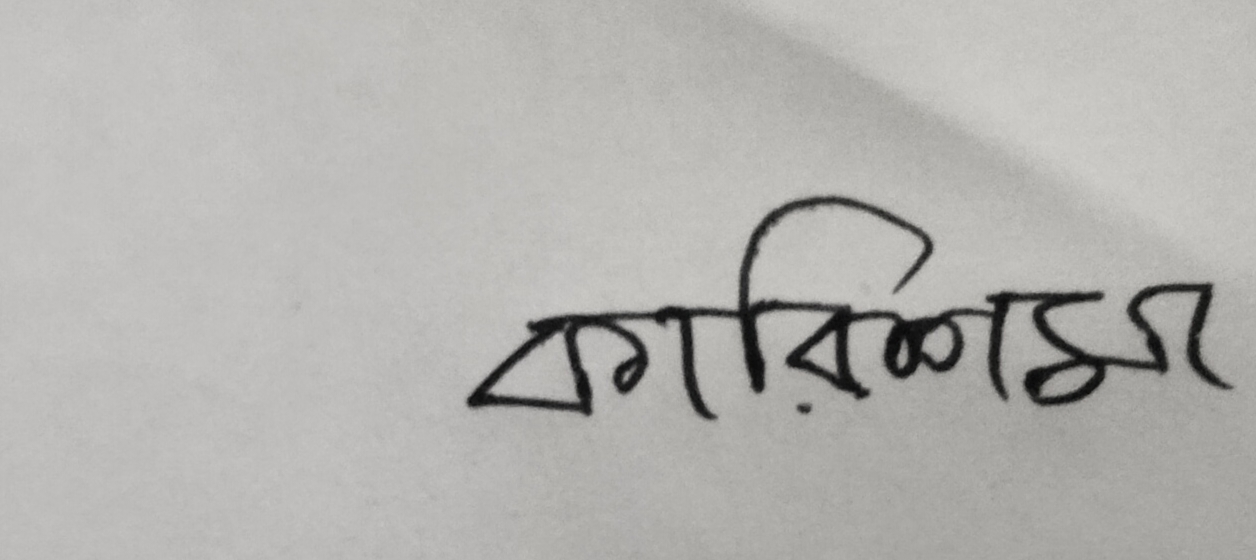 কারিশমা